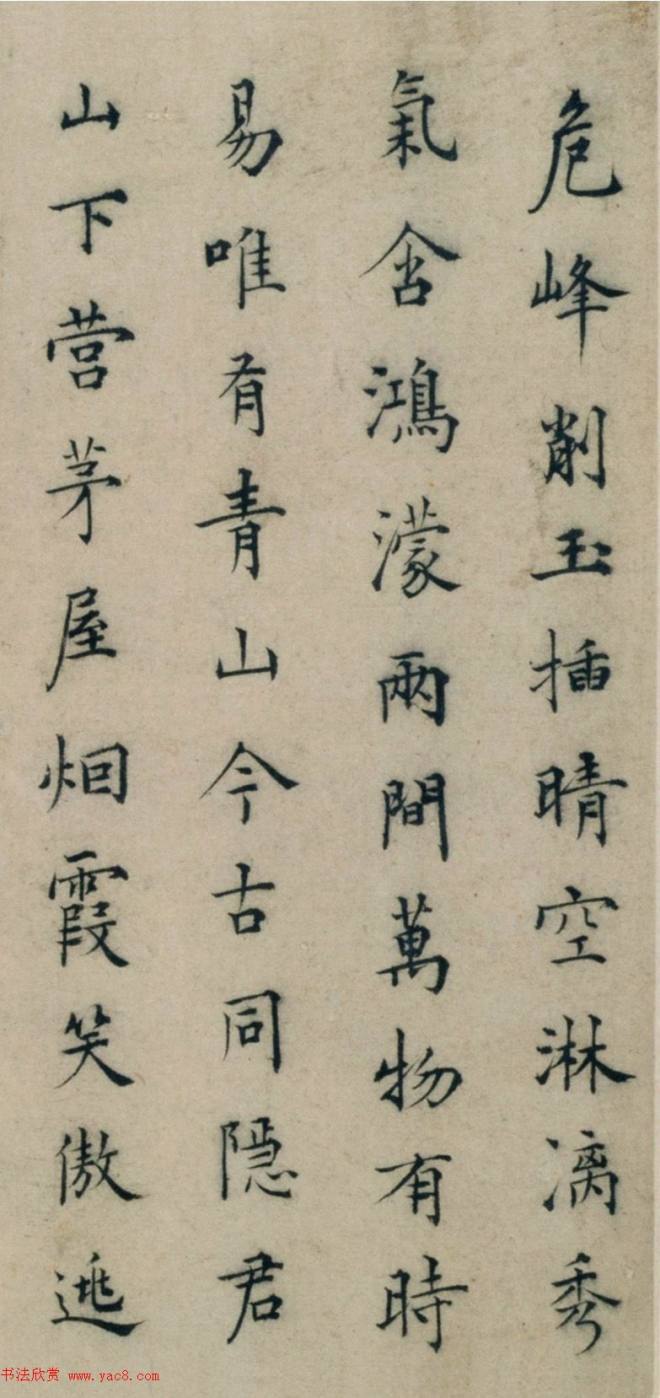 危峰削玉插晴空淋漓秀
氣含鴻濛兩間萬物有時
易唯有青山今古同隱君
山下營茅屋烟霞笑傲逃
书法欣赏 www.yac8.com